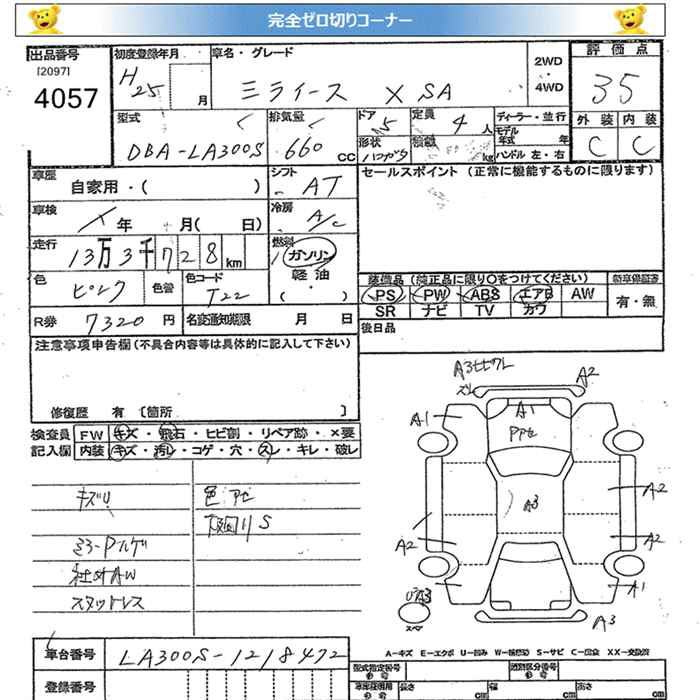 完全ゼロ切りコーナー
出品番号 初度登録年月 車名・グレード 2WD ・ 4WD 評価点
[2097]
4057 H25 月 ミライース X SA 35
型式 排気量 ドア 定員 ディーラー・並行 外装 内装
DBA-LA300S 660 CC 5 4 人 モデル年式 年 C C
形状 積載 kg ハンドル 左・右
車歴 自家用・( ) シフト AT セールスポイント(正常に機能するものに限ります)
車検 年 月( 日) 冷房 A/C
走行 13万3千728km 燃料 ガソリン
軽油
( ・ )
色 ピンク 色替 色コード T22
装備品(純正品に限り○をつけてください) 新車保証書
PS PW ABS エアB AW 有・無
SR ナビ TV カワ
R券 7320円 名変通知期限 月 日 後日品
注意事項申告欄(不具合内容等は具体的に記入して下さい)
修復歴 有[箇所 ]
検査員 FW キズ・飛石・ヒビ割・リペア跡・×要
記入欄 内装 キズ・汚レ・コゲ・穴・スレ・キレ・破レ
キズU 色アセ
下回りS
ミラーPハゲ
社外AW
スタットレス
A2
A1 A1 A2
A3
A2
A2 A2
A1
A3
スペア
A3
A-キズ E-エクボ U-凹み W-補修跡 S-サビ C-腐食 XX-交換済
車台番号 LA300S-1218472 型式指定番号 類別区分番号
登録番号 長さ cm 幅 cm 高さ cm